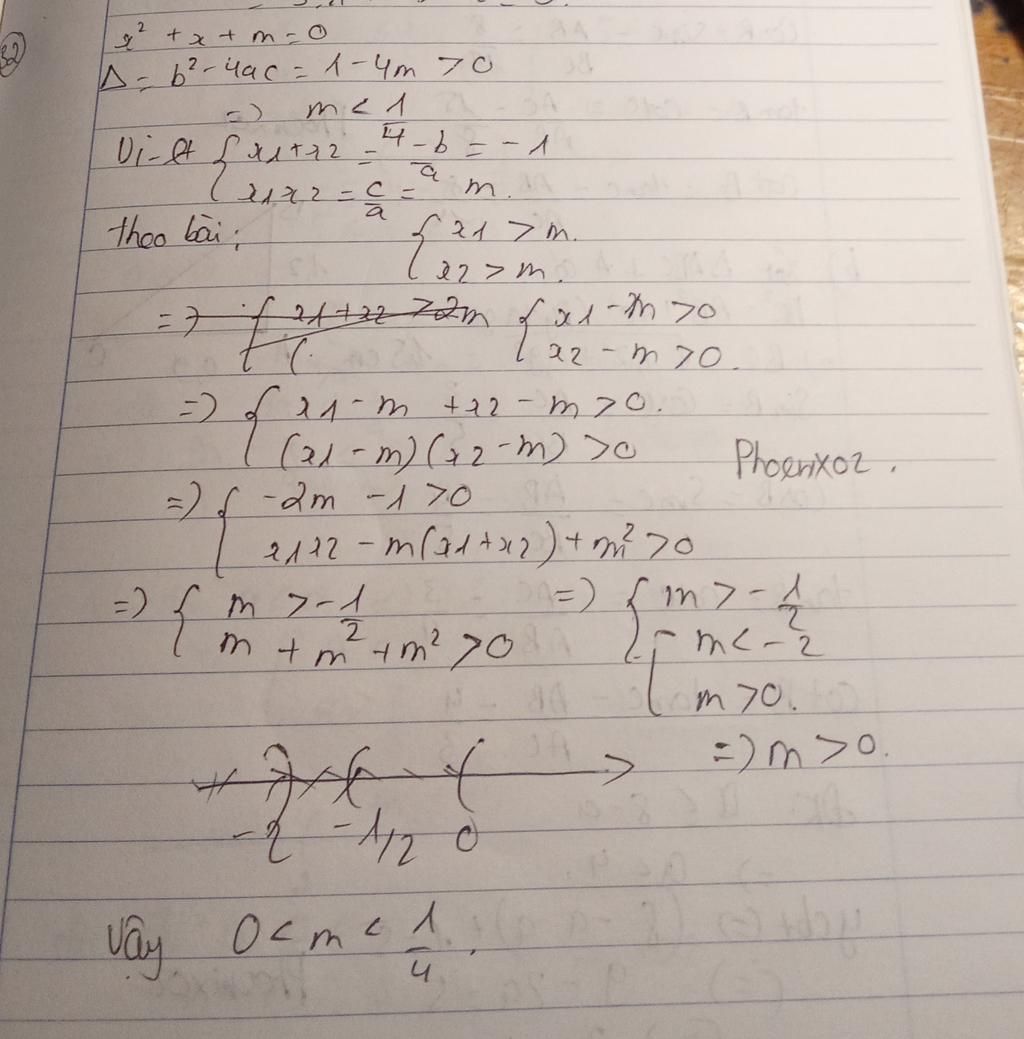 32
x² + x + m = 0
Δ = b² - 4ac = 1 - 4m > 0
=> m < 1/4
Vi-ét { x1 + x2 = -b/a = -1
x1x2 = c/a = m.
theo bài: { x1 > m.
x2 > m.
=> { x1 + x2 > 2m { x1 - m > 0
( x2 - m > 0.
=> { x1 - m + x2 - m > 0.
(x1 - m)(x2 - m) > 0 Phoenix02.
=> { -2m - 1 > 0
x1x2 - m(x1 + x2) + m² > 0
=> { m > -1/2 => { m > -1/2
m + m + m² > 0 [ m < -2
m > 0.
=> m > 0.
-2 -1/2 0
Vậy 0 < m < 1/4.